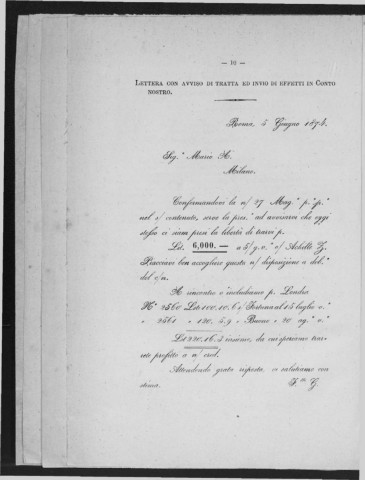 — 10 —
LETTERA CON AVVISO DI TRATTA ED INVIO DI EFFETTI IN CONTO
NOSTRO.
Roma, 5 Giugno 1874.
Sig.r Mario A.
Milano.
Confermandoci la n/ 27 Mag.o p.o p.o
nel s/ contenuto, serve la pres.e ad avvisarvi che oggi
stesso ci siam presi la libertà di trarvi p.
Lit. 6,000.— a 5/ g. v.a o/ Achille Z.
Piacciavi ben accogliere questa n/ disposizione a deb.
del c/n.
A rincontro v'includiamo p. Londra
N.o 2560 Lst. 100. 10. 6 s/ Fortuna al 15 luglio v.o
" 2561 " 120. 5. 9 s/ Buono " 20 ag.o v.o
Lst 220. 16. 3 insieme, da cui speriamo trar-
rete profitto a n/ cred.
Attendendo grata risposta, vi salutiamo con
stima.
G.